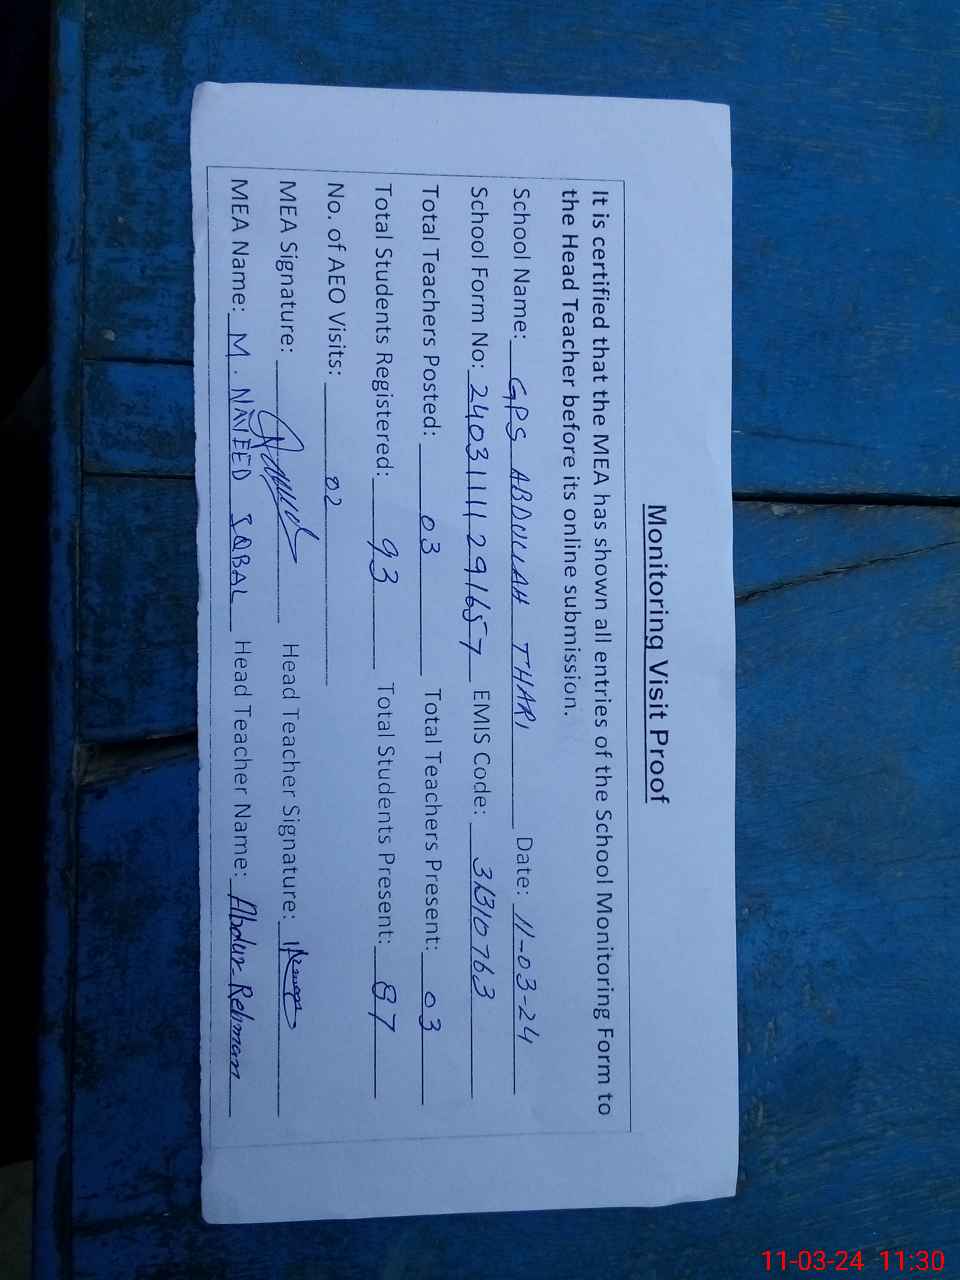 Monitoring Visit Proof
It is certified that the MEA has shown all entries of the School Monitoring Form to
the Head Teacher before its online submission.
School Name: GPS ABDULLAH THARI Date: 11-03-24
School Form No: 2403111129 1657 EMIS Code: 31310763
Total Teachers Posted: 03 Total Teachers Present: 03
Total Students Registered: 93 Total Students Present: 87
No. of AEO Visits: 02
MEA Signature: Head Teacher Signature:
MEA Name: M. NAVEED IQBAL Head Teacher Name: Abdur Rehman
11-03-24 11:30